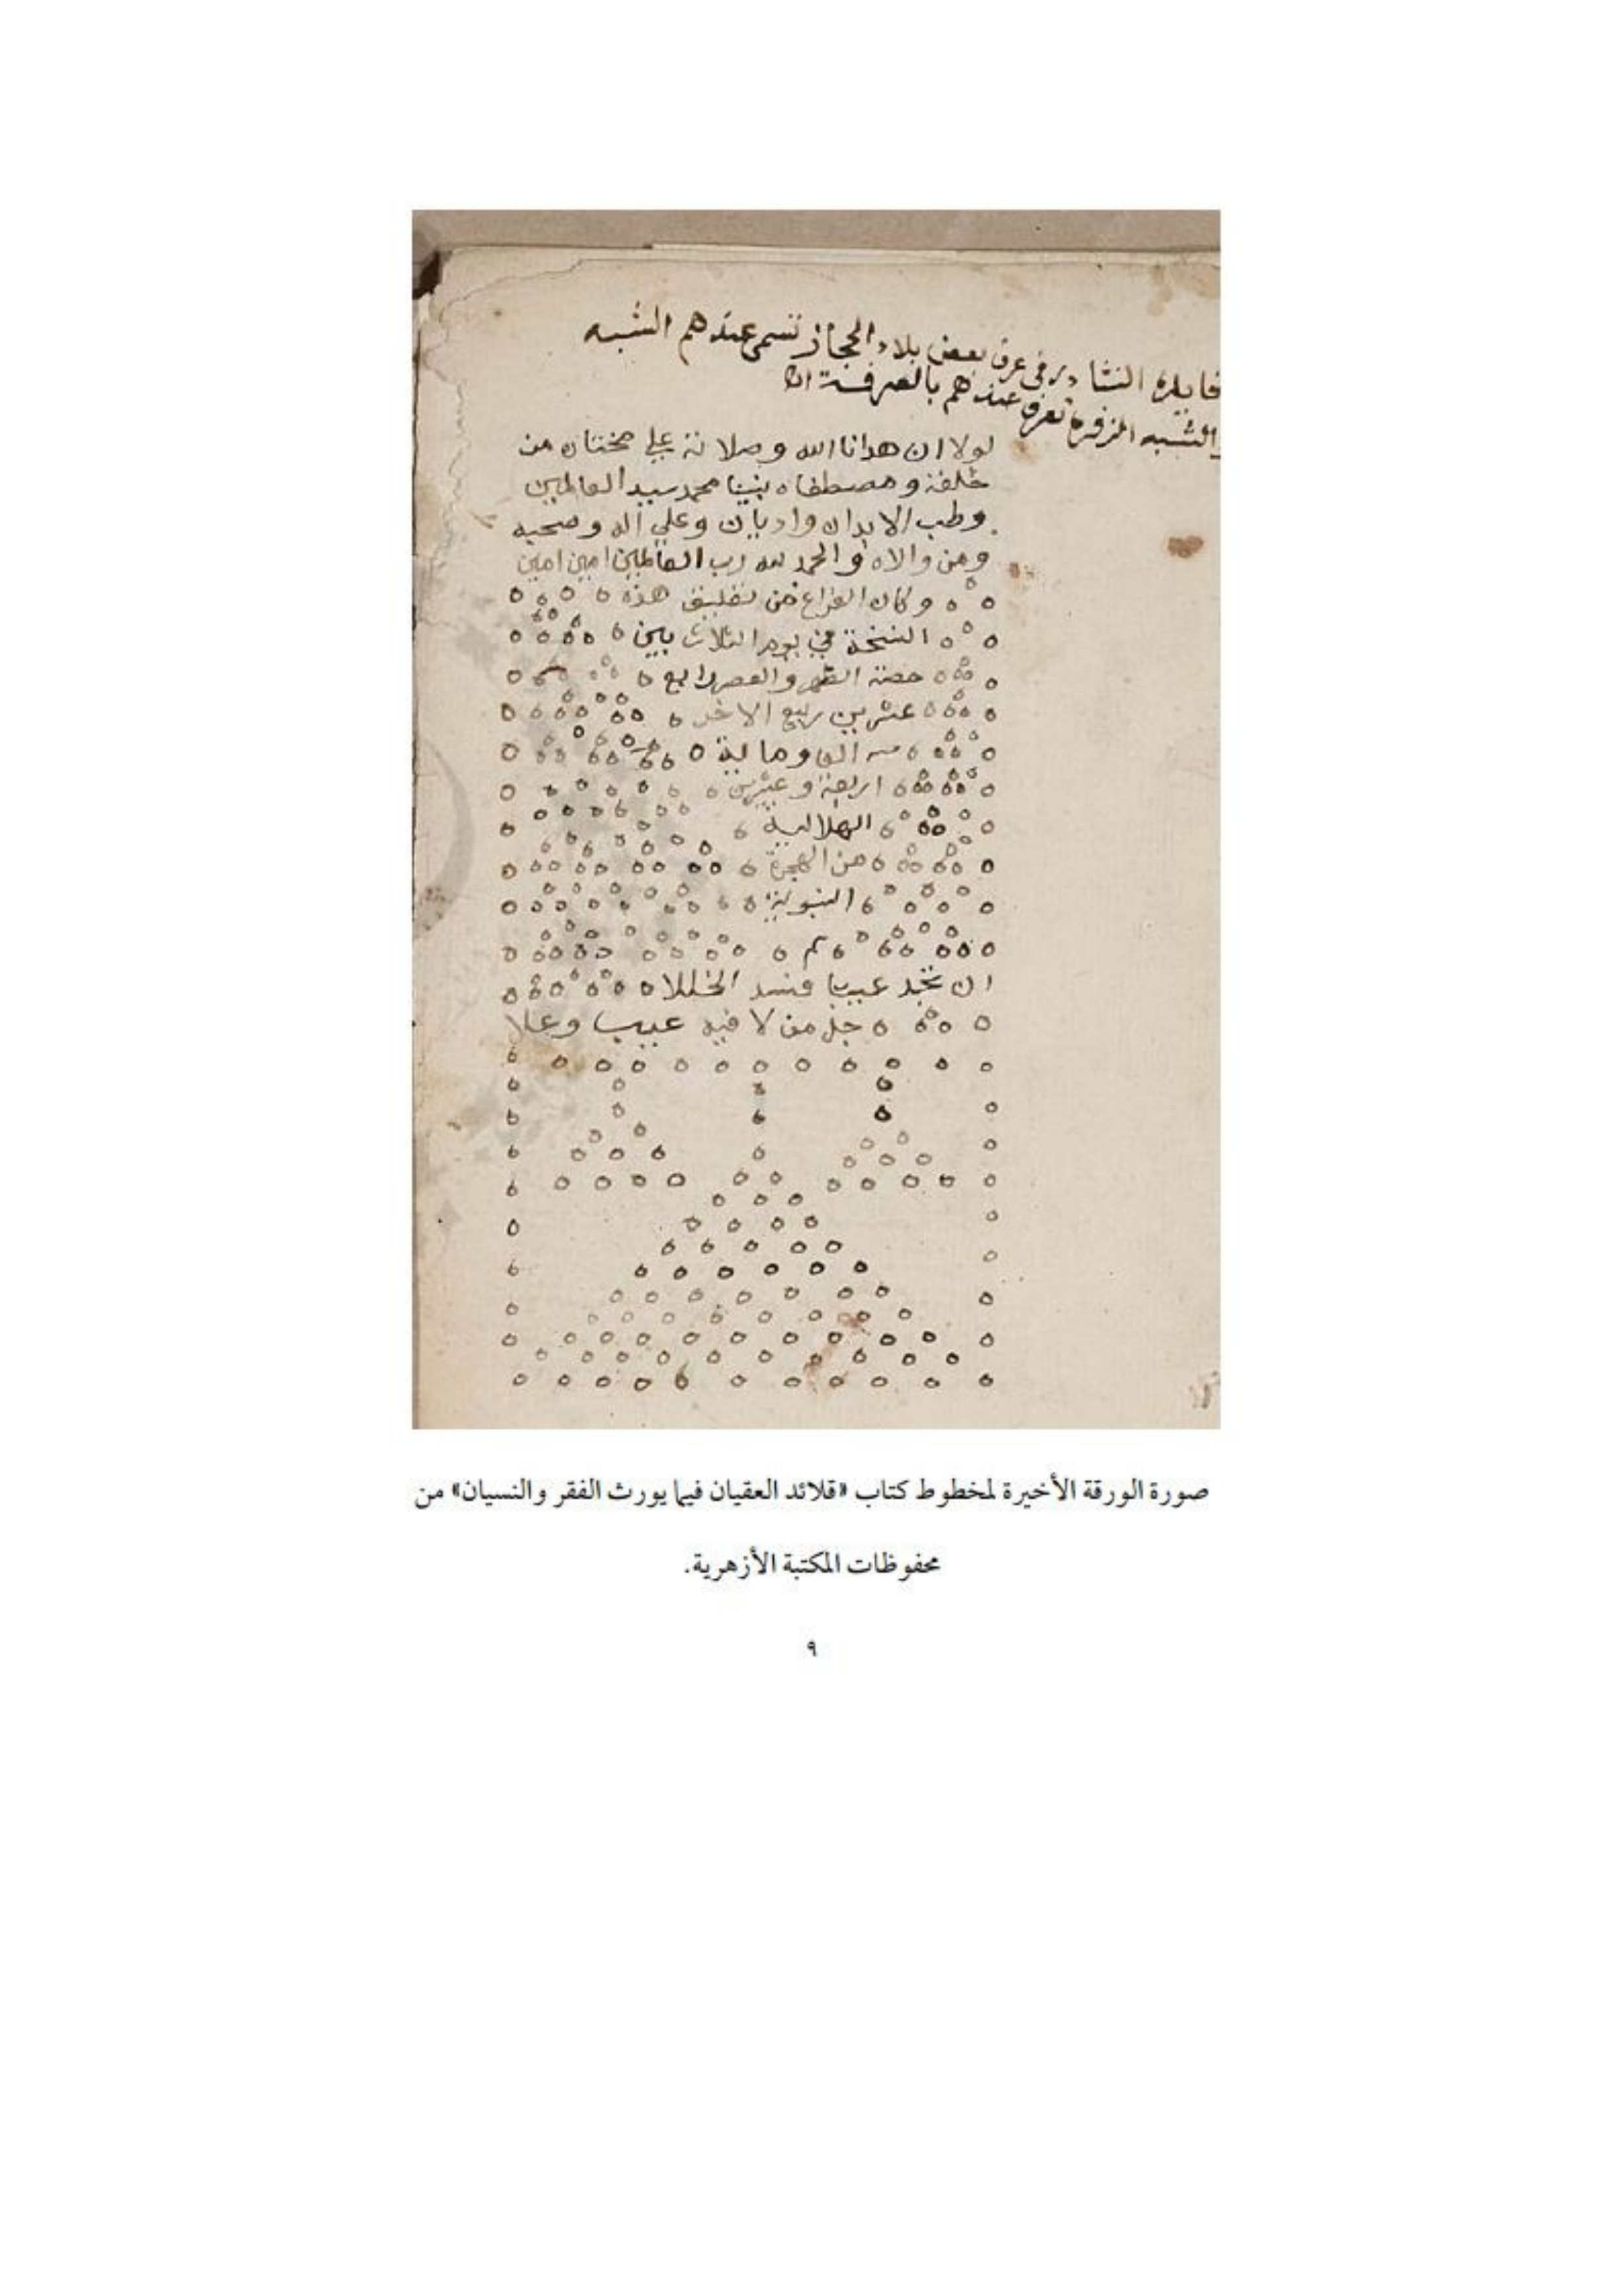 فايدة النشادر في عرف بعض بلاد الحجاز تسمى عندهم الشبه
والشبه المزفرة تعرف عندهم بالصرفة
لولا ان هدانا الله وصلاته علي مختاره من
خلقه ومصطفاه نبينا محمد سيد العالمين
وطب الابدان واديان وعلي اله وصحبه
ومن والاه والحمد لله رب العالمين امين امين
وكان الفراغ من تعليق هذه
النسخة في يوم الثلاث بين
حصة الظهر والعصر رابع
عشرين ربيع الاخر
سنه الف ومايية
اربعة وعشرين
الهلالية
من الهجرة
النبوية
تم
ان تجد عيبا فسد الخللا
جل من لا فيه عيب وعلا
صورة الورقة الأخيرة لمخطوط كتاب «قلائد العقيان فيما يورث الفقر والنسيان» من
محفوظات المكتبة الأزهرية.
٩